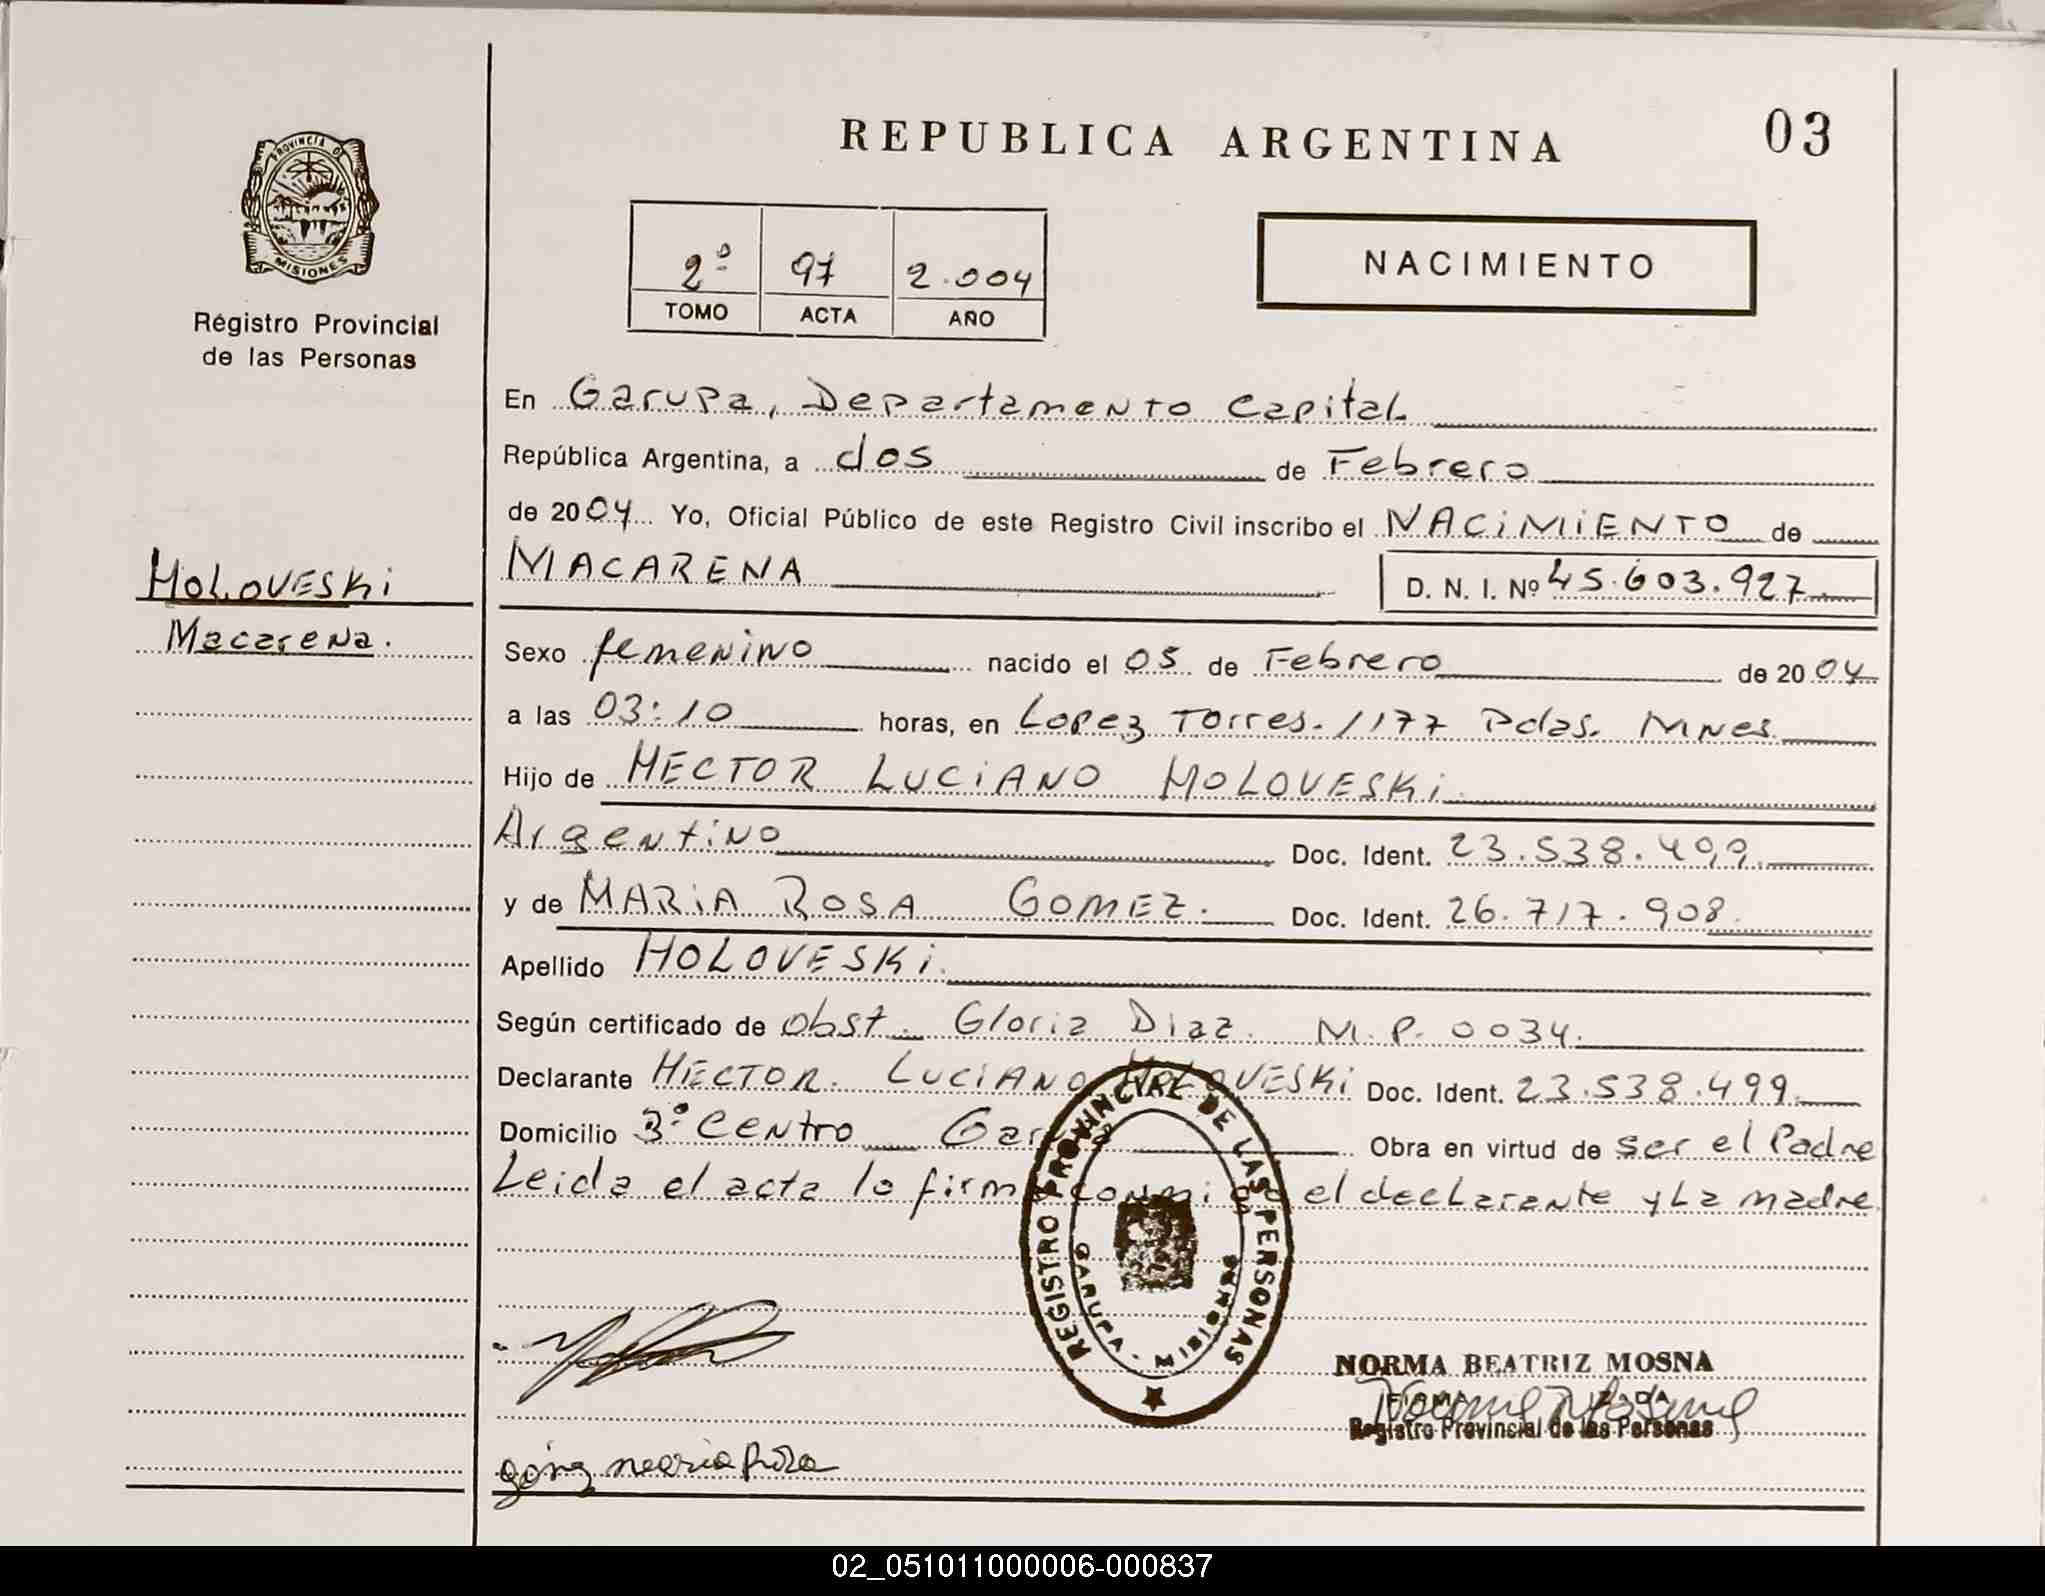 REPUBLICA ARGENTINA
03
PROVINCIA DE
MISIONES
Registro Provincial
de las Personas
2º 97 2.004
TOMO ACTA AÑO
NACIMIENTO
En Garupa, Departamento Capital
República Argentina, a dos de Febrero
de 2004 Yo, Oficial Público de este Registro Civil inscribo el NACIMIENTO de
MACARENA D. N. I. Nº 45.603.927
HOLOVESKi
Macarena.
Sexo femenino nacido el 05 de Febrero de 2004
a las 03:10 horas, en Lopez Torres. 1177 Pdas. MNes.
Hijo de HECTOR LUCIANO HOLOVESKi
Argentino Doc. Ident. 23.538.499
y de MARIA ROSA GOMEZ. Doc. Ident. 26.717.908.
Apellido HOLOVESKi.
Según certificado de obst. Gloria Diaz. M.P. 0034.
Declarante HECTOR. LUCIANO HOLOVESKi Doc. Ident. 23.538.499.
Domicilio 3º Centro Garupa Obra en virtud de ser el Padre
Leida el acta lo firma conmigo el declarante y La madre
REGISTRO PROVINCIAL DE LAS PERSONAS
GARUPA - MISIONES
NORMA BEATRIZ MOSNA
Registro Provincial de las Personas
maria Rosa
02_051011000006-000837